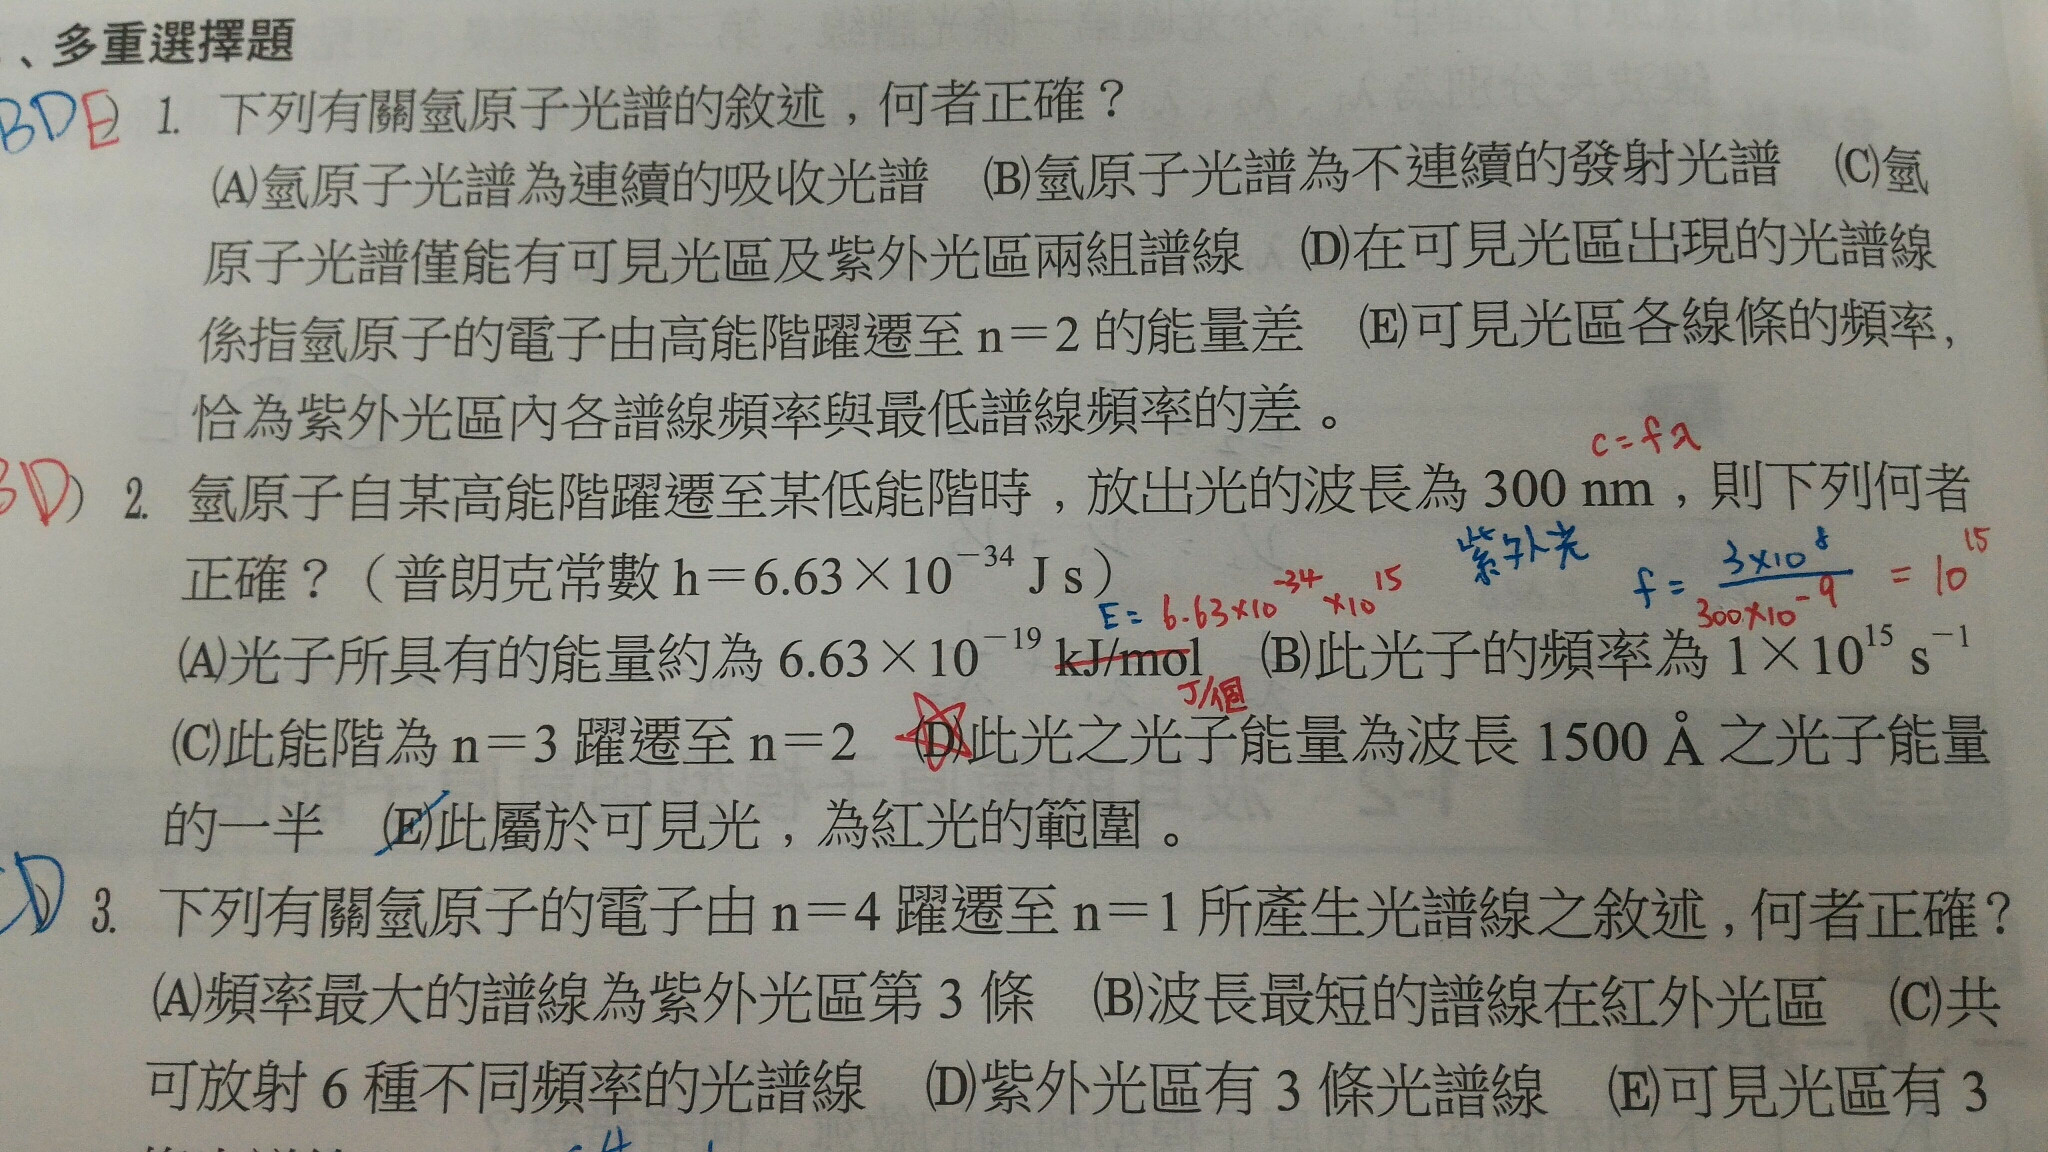 、多重選擇題
BDE) 1. 下列有關氫原子光譜的敘述，何者正確？
(A)氫原子光譜為連續的吸收光譜 (B)氫原子光譜為不連續的發射光譜 (C)氫
原子光譜僅能有可見光區及紫外光區兩組譜線 (D)在可見光區出現的光譜線
係指氫原子的電子由高能階躍遷至 n＝2 的能量差 (E)可見光區各線條的頻率，
恰為紫外光區內各譜線頻率與最低譜線頻率的差。
c=fλ
BD) 2. 氫原子自某高能階躍遷至某低能階時，放出光的波長為 300 nm，則下列何者
正確？（普朗克常數 h＝6.63×10⁻³⁴ J s）
紫外光 f = 3×10⁸ / 300×10⁻⁹ = 10¹⁵
E= 6.63×10⁻³⁴ ×10¹⁵
(A)光子所具有的能量約為 6.63×10⁻¹⁹ kJ/mol (B)此光子的頻率為 1×10¹⁵ s⁻¹
J/個
(C)此能階為 n＝3 躍遷至 n＝2 (D)此光之光子能量為波長 1500 Å 之光子能量
的一半 (E)此屬於可見光，為紅光的範圍。
D 3. 下列有關氫原子的電子由 n＝4 躍遷至 n＝1 所產生光譜線之敘述，何者正確？
(A)頻率最大的譜線為紫外光區第 3 條 (B)波長最短的譜線在紅外光區 (C)共
可放射 6 種不同頻率的光譜線 (D)紫外光區有 3 條光譜線 (E)可見光區有 3